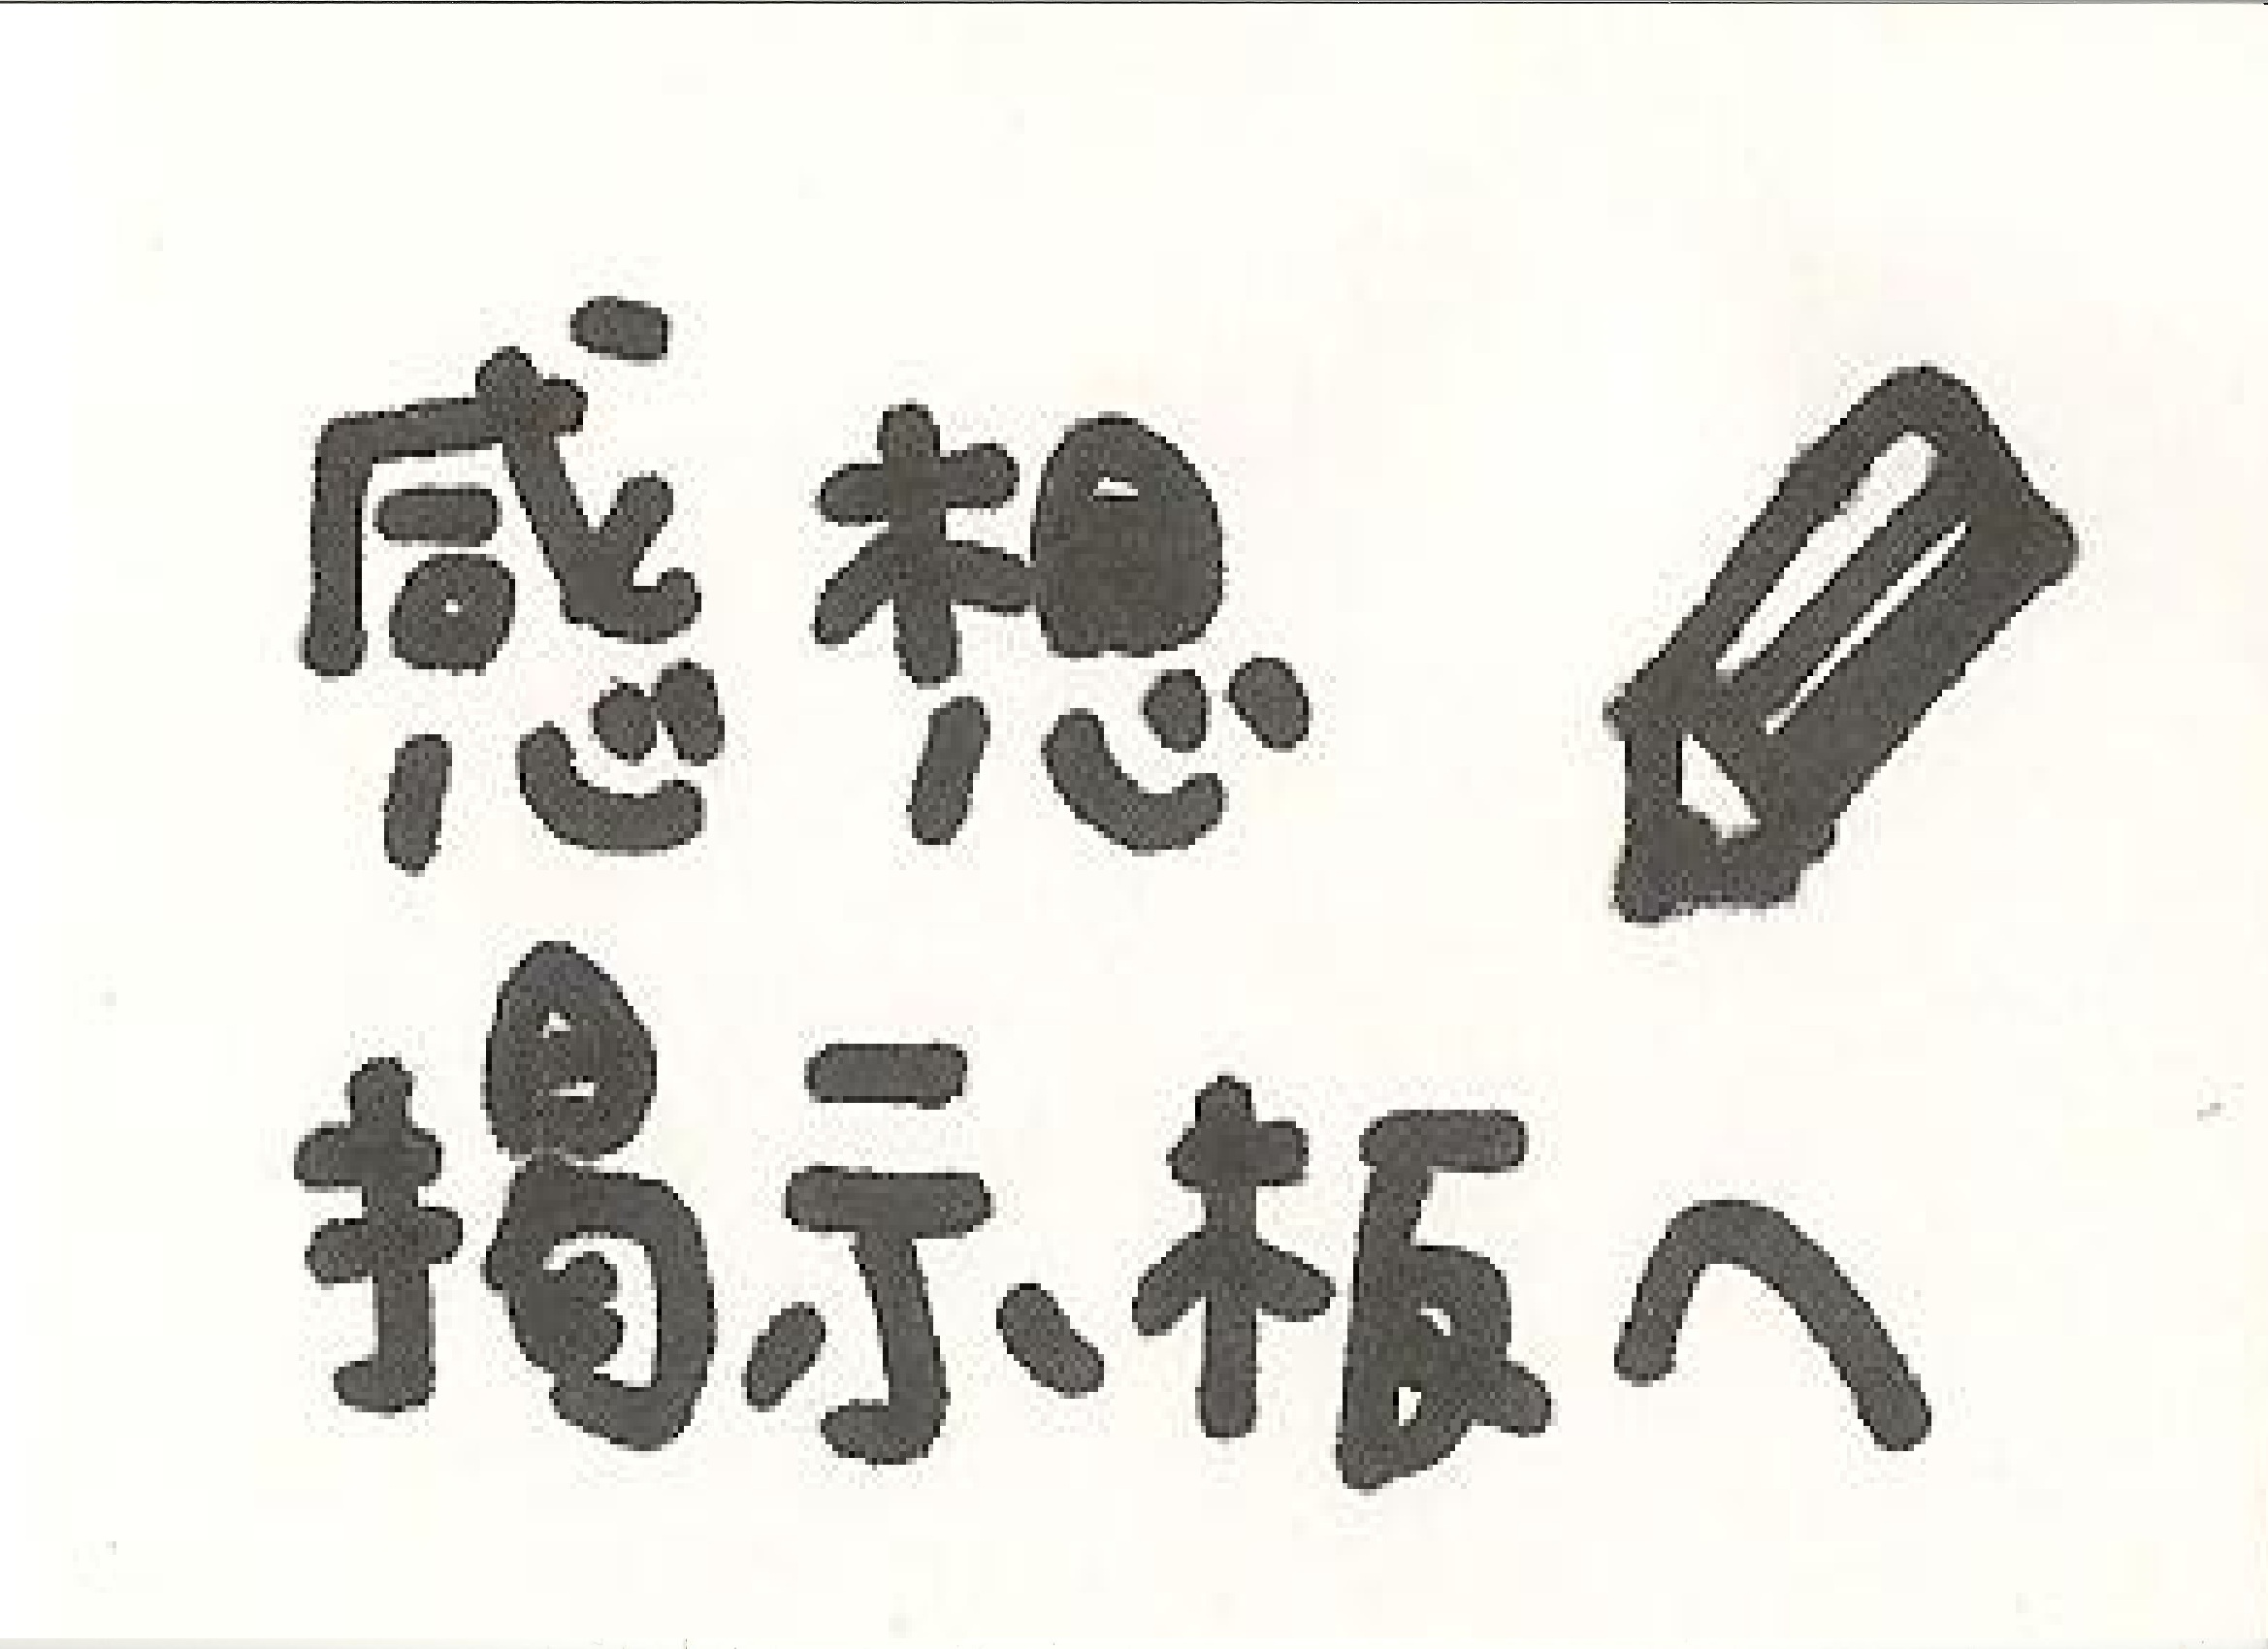 感想
掲示板へ